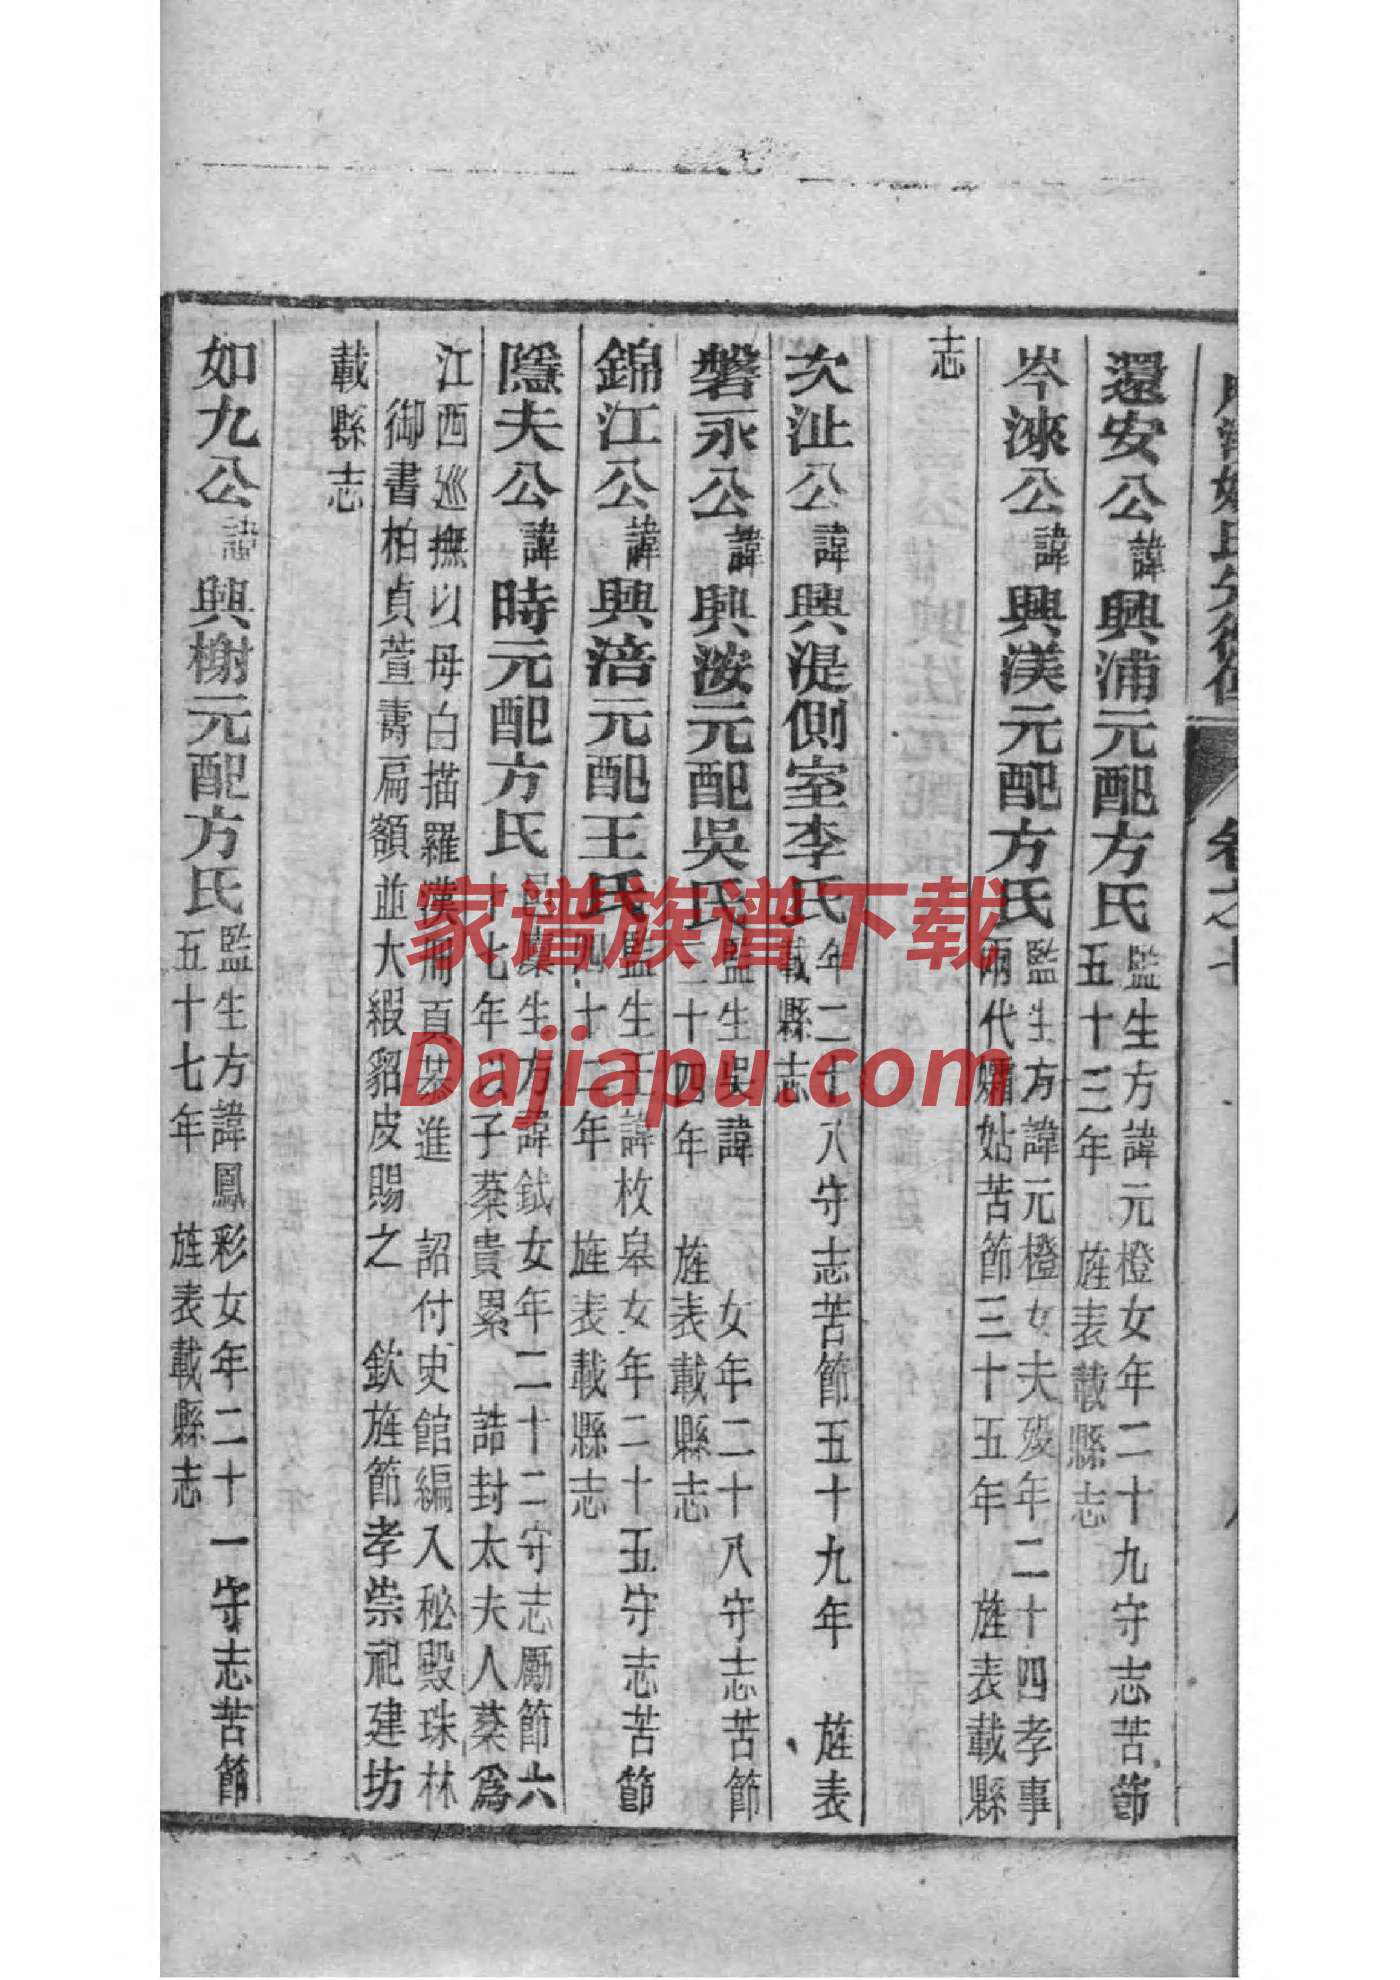 卷之七
還安公諱興浦元配方氏監生方諱元橙女年二十九守志苦節
五十三年 旌表載縣志
岑淶公諱興渼元配方氏監生方諱元橙女夫歿年二十四孝事
兩代孀姑苦節三十五年 旌表載縣
志
次沚公諱興湜側室李氏年二十八守志苦節五十九年 旌表
載縣志
磐永公諱興洝元配吳氏監生吳諱 女年二十八守志苦節
二十四年 旌表載縣志
錦江公諱興涪元配王氏監生王諱枚皋女年二十五守志苦節
四十二年 旌表載縣志
隱夫公諱時元配方氏 生方諱鉞女年二十二守志勵節六
十七年以子棻貴累 誥封太夫人棻為
江西巡撫以母白描羅漢冊百 進 詔付史館編入秘殿珠林
御書柏貞萱壽扁額並大緞貂皮賜之 欽旌節孝崇祀建坊
載縣志
如九公諱興榭元配方氏監生方諱鳳彩女年二十一守志苦節
五十七年 旌表載縣志
家谱族谱下载
Dajiapu.com